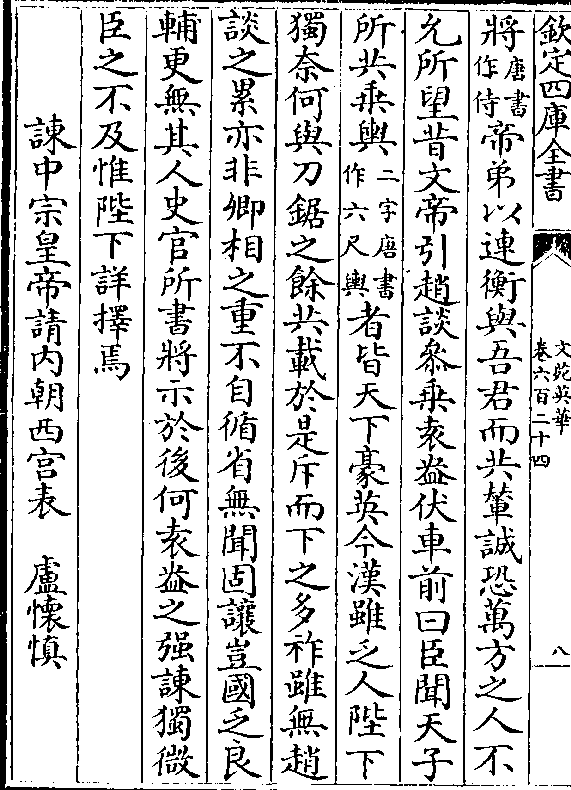 欽定四庫全書
文苑英華
卷六百二十四
八
將唐書作侍帝弟以連衡與吾君而共輦誠恐萬方之人不
允所望昔文帝引趙談叅乗袁盎伏車前曰臣聞天子
所共乗輿二字唐書作六尺輿者皆天下豪英今漢雖乏人陛下
獨奈何與刀鋸之餘共載於是斥而下之多祚雖無趙
談之累亦非卿相之重不自循省無聞固讓豈國乏良
輔更無其人史官所書將示於後何袁盎之强諫獨微
臣之不及惟陛下詳擇焉
諫中宗皇帝請内朝西宫表 盧懷慎